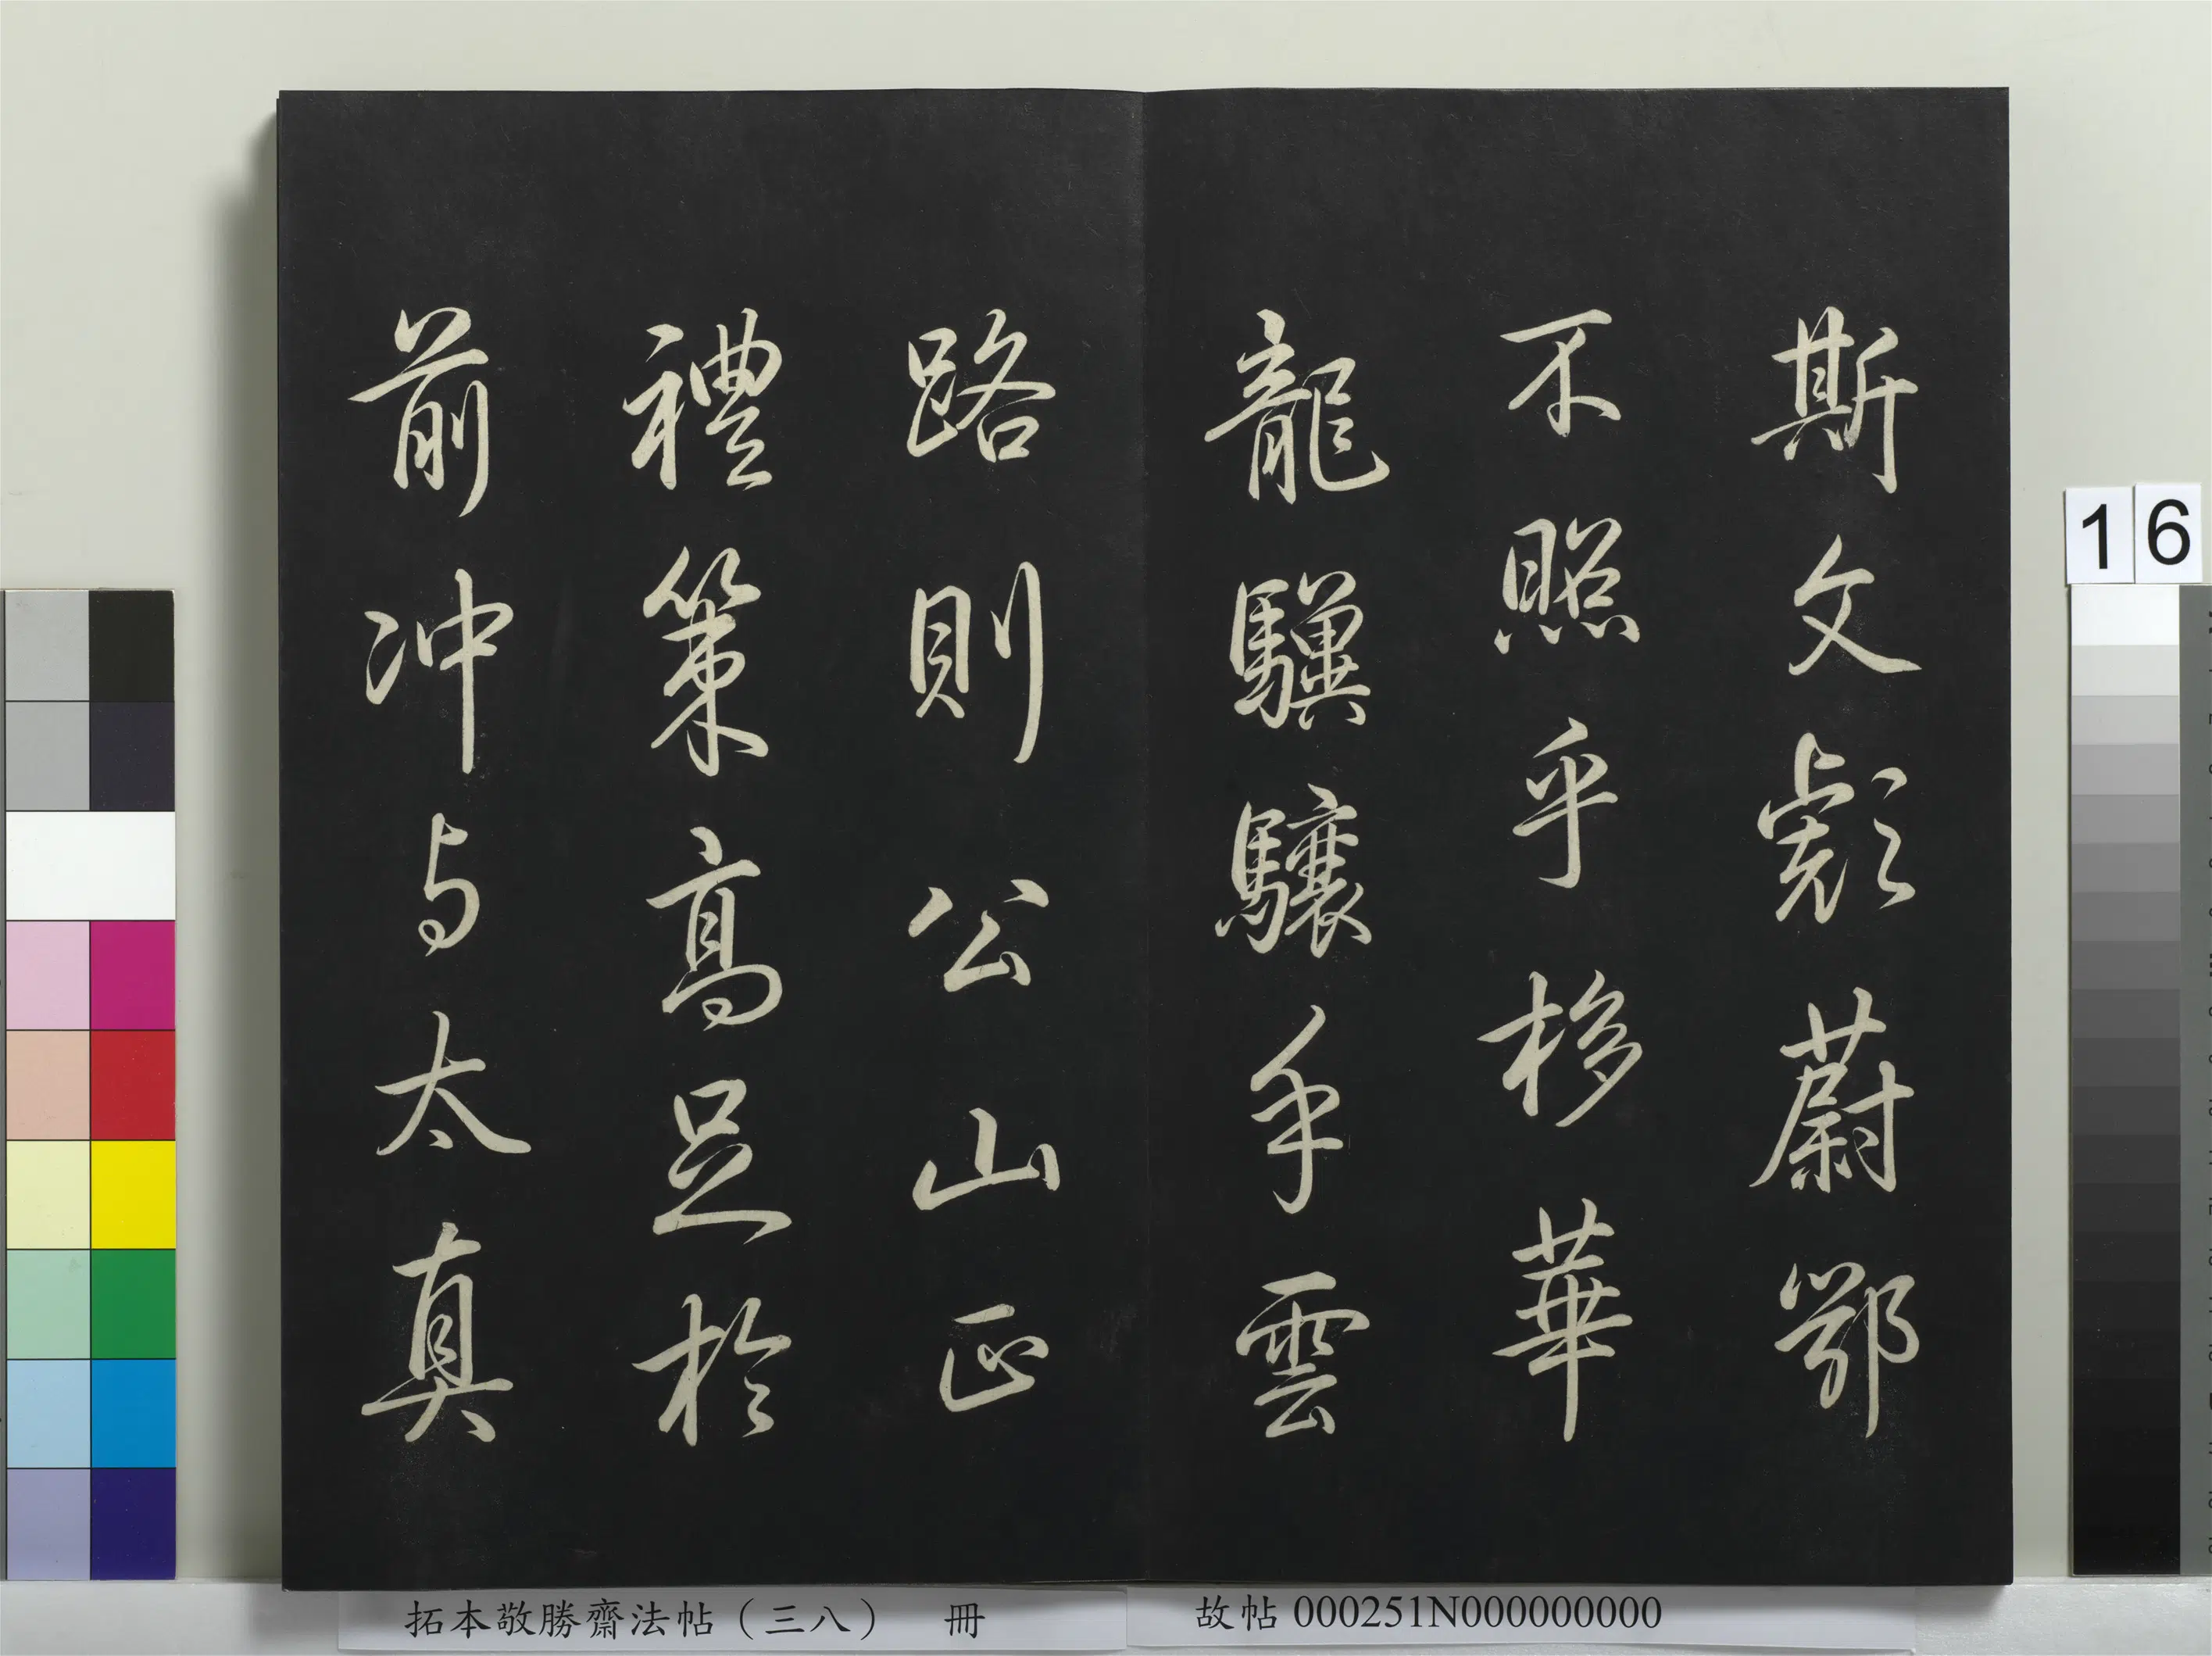 斯文彪蔚鄂
不照乎栘華
龍驥驤乎雲
路則公山正
禮策高足於
前冲与太真
16
拓本敬勝齋法帖（三八） 冊
故帖 000251N000000000